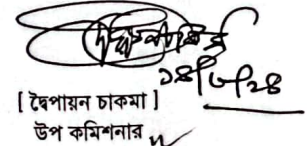 ১৪/৮/২৪
[ দ্বৈপায়ন চাকমা ]
উপ কমিশনার